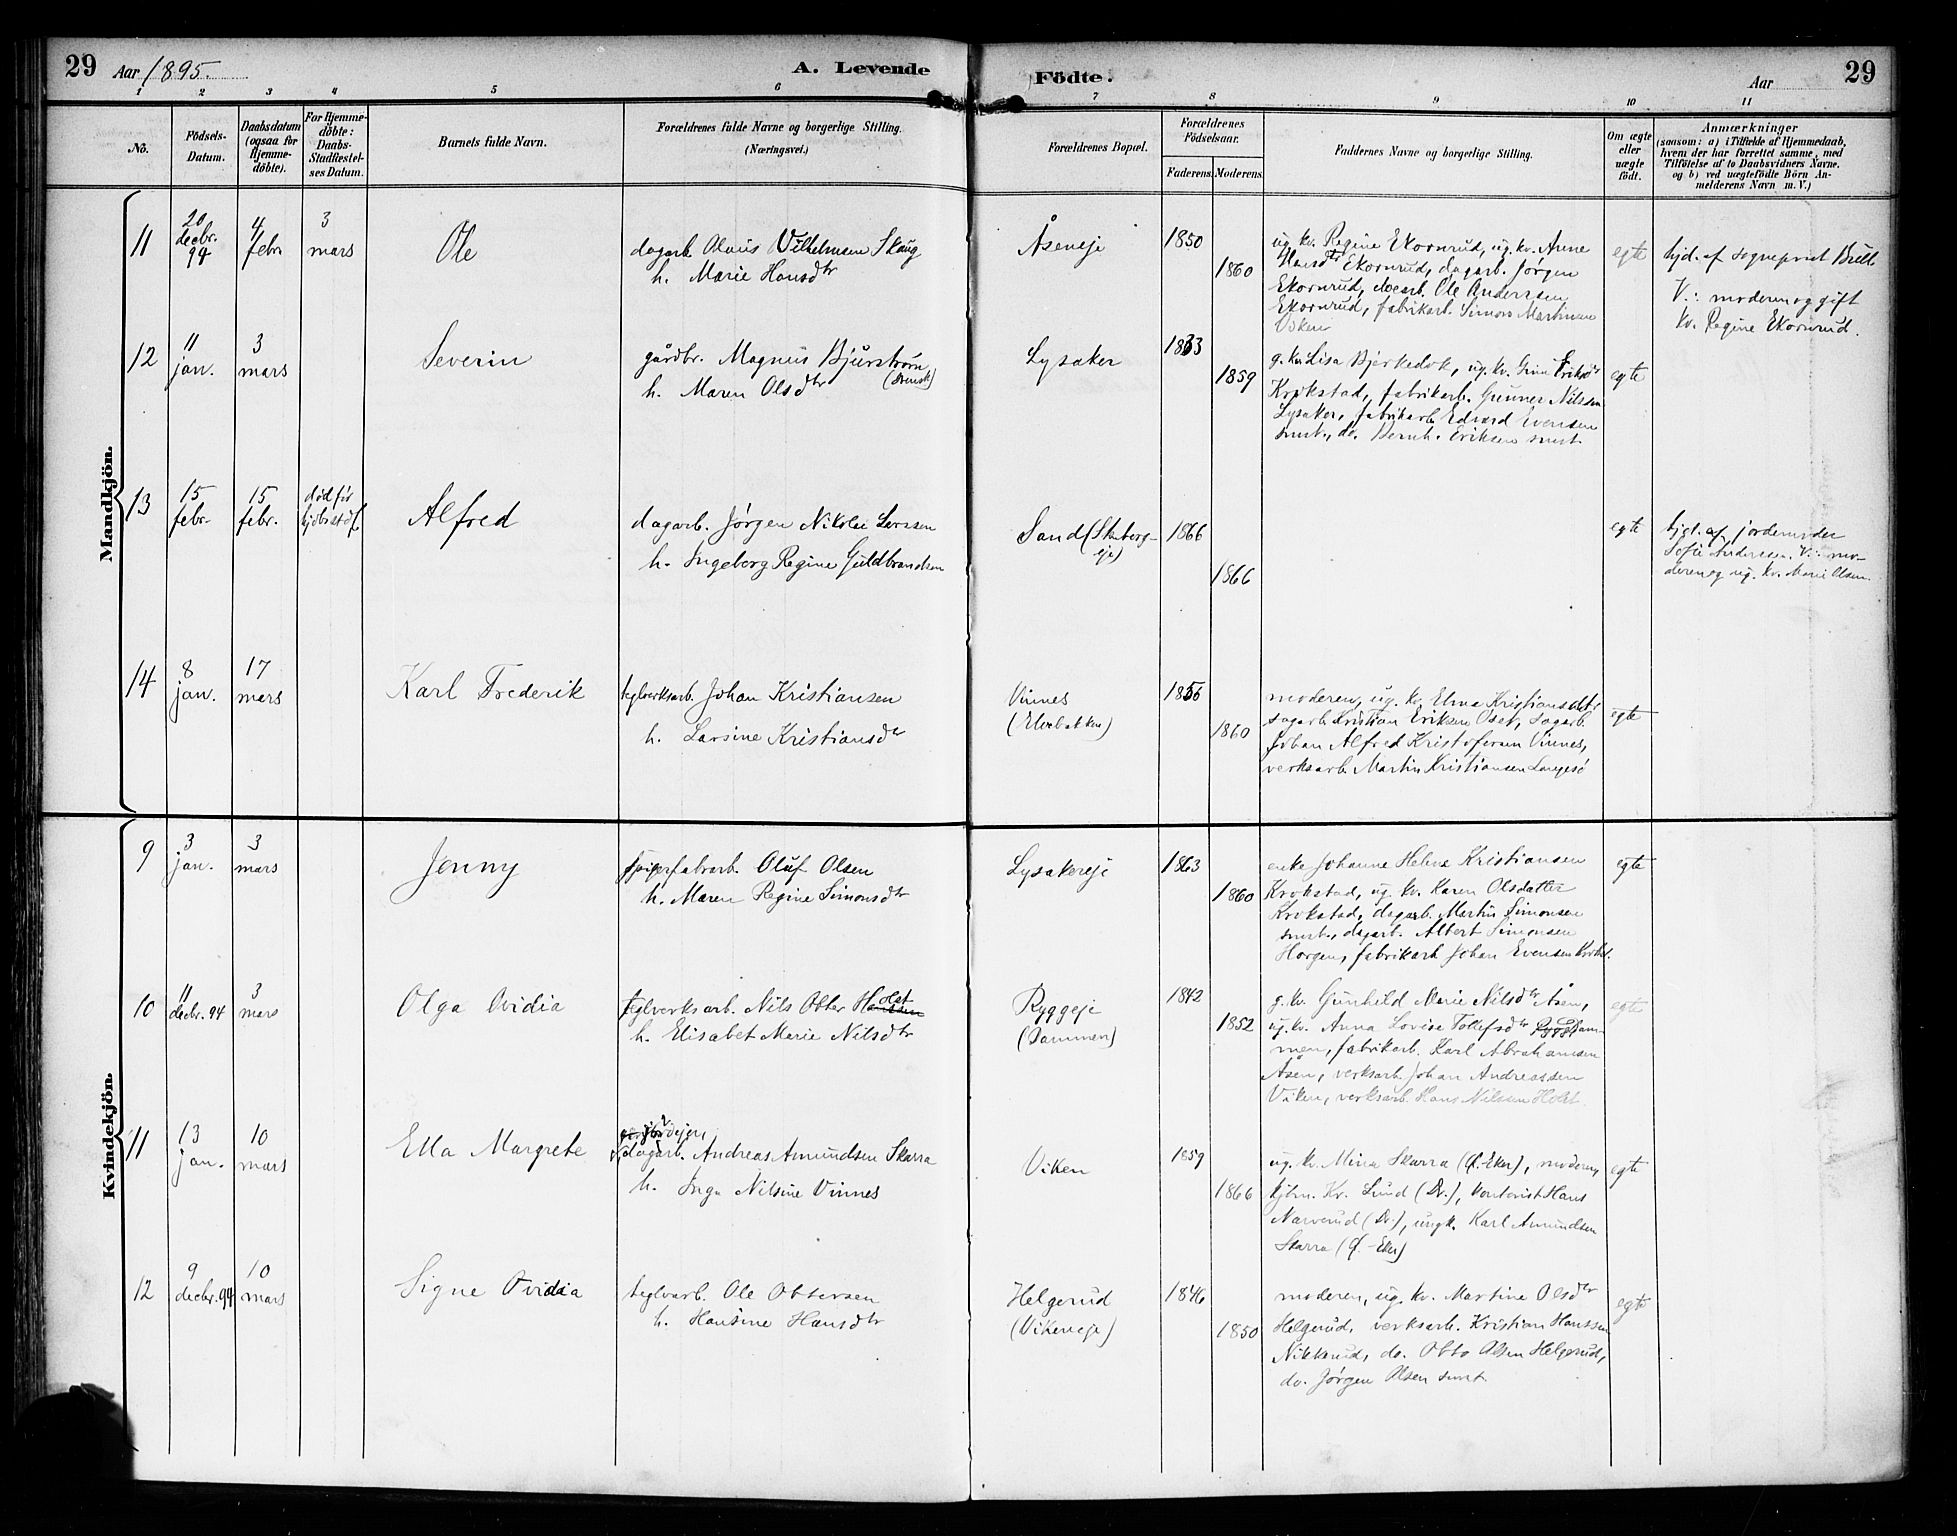 29 Aar 1895. A. Levende Födte. Aar 29
1 2 3 4 5 6 7 8 9 10 11
No.
Födsels-
Datum.
Daabsdatum
(ogsaa for
Hjemme-
döbte).
For Hjemme-
döbte:
Daabs-
Stadfæstel-
ses Datum.
Barnets fulde Navn.
Forældrenes fulde Navne og borgerlige Stilling.
(Næringsvei.)
Forældrenes Bopæl.
Forældrenes
Födselsaar.
Faderens. Moderens.
Faddernes Navne og borgerlige Stilling.
Om ægte
eller
uægte
födt.
Anmærkninger
(saasom: a) i Tilfælde af Hjemmedaab,
hvem der har forrettet samme, med
Tilföielse af to Daabsvidners Navne.
og b) ved uægtefödte Börn An-
melderens Navn m. V.)
Mandkjön.
11
20
decbr.
94
4
febr
3
mars
Ole
dagarb. Vilhelmsen Skaug
h. Marie Hansdtr
Åseneje
1850
1860
ug. kv. Regine Ekornrud, ug. kv. Anne
Hansdtr Ekornrud, dagarb. Jørgen
Ekornrud, Ole Andersen
Ekornrud, fabrikarb. Simon
Viken
egte
hjd. af sogneprest
V.: moderen og gift
kv. Regine Ekornrud.
12
11
jan.
3
mars
Severin
gårdbr. Magnus Bjurstrøm
(svensk)
h. Maren Olsdtr
Lysaker
1833
1859
g. kv. Lisa ug. kv. Eriksdtr
Krokstad, fabrikarb. Gunner Nilssen
Lysaker, fabrikarb. Edvard Evensen
smst., do. Bernh. Eriksen smst.
egte
13
15
febr.
15
febr.
død før
Alfred
dagarb. Jørgen Nikolai Larssen
h. Ingeborg Regine Guldbrandsen
Sand (Skaberg-
eje)
1866
1866
egte
hjd. af jordemoder
Sofie Andersen. V.: mo-
deren og ug. kv. Marie Olsen.
14
8
jan.
17
mars
Karl Frederik
teglverksarb. Johan Kristiansen
h. Larsine Kristiansdtr
Vinnes
(Elvebakken)
1856
1860
moderen, ug. kv. Elma Kristiansdtr
sagarb. Kristian Eriksen Oset, sagarb.
Johan Alfred Kristofersen Vinnes,
verksarb. Martin Kristiansen Langesø
egte
Kvindekjön.
9
3
jan.
3
mars
Jenny
spigerfabrarb. Oluf Olsen
h. Maren Regine Simonsdtr
Lysakereje
1863
1860
enke Johanne Helene Kristiansen
Krokstad, ug. kv. Karen Olsdatter
Krokstad, dagarb. Martin Simonsen
smst., dagarb. Albert Simonsen
Horgen, fabrikarb. Johan Evensen Krokst.
egte
10
11
decbr. 94
3
mars
Olga Ovidia
teglverksarb. Nils Otter Holst
h. Elisabet Marie Nilsdtr
Ryggeje
(Dammen)
1842
1852
g. kv. Gunhild Marie Nilsdtr Åsen,
ug. kv. Anna Lovise Tollefsdtr Dam-
men, fabrikarb. Karl Abrahamsen
Åsen, verksarb. Johan Andreassen
Viken, verksarb. Hans Nilssen Holst.
egte
11
13
jan.
10
mars
Ella Margrete
dagarb. Andreas Amundsen Skarra
h. Inga Nilsine Vinnes
Viken
1859
1866
ug. kv. Mina Skarra (Ø.-Eker), moderen,
kjbm. Kr. Lund (Dr.), kontorist Hans
Narverud (Dr.), ungk. Karl Amundsen
Skarra (Ø.-Eker)
egte
12
9
decbr. 94
10
mars
Signe Ovidia
teglvarb. Ole Ottersen
h. Hansine Hansdtr
Helgerud
(Vikeneje)
1846
1850
moderen, ug. kv. Martine Olsdtr
Helgerud, verksarb. Kristian Hanssen
Nikkerud, do. Otto Olsen Helgerud,
do. Jørgen Olsen smst.
egte